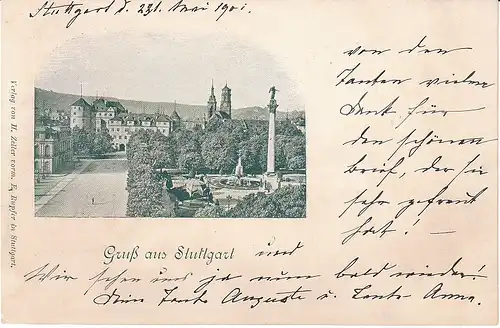 Stuttgart d. 231. Mai 1901.
von den
Tanten vielen
Dank für
den schönen
Brief, der sie
sehr gefreut
hat! —
Gruß aus Stuttgart und
Wir sehen uns ja nun bald wieder!
Deine Tante Auguste u. Tante Anna.
Verlag von H. Zeiler vorm. E. Hopfer in Stuttgart.